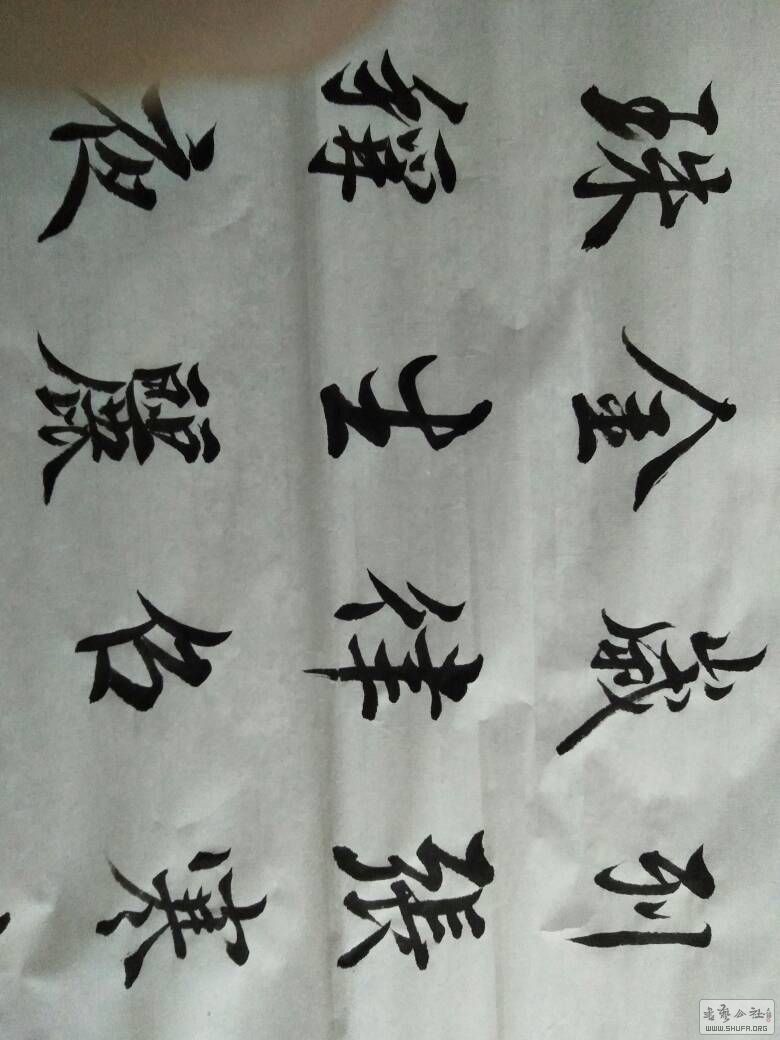 列張寒
歲律召
金生麗
珠稱夜
書藝公社
WWW.SHUFA.ORG